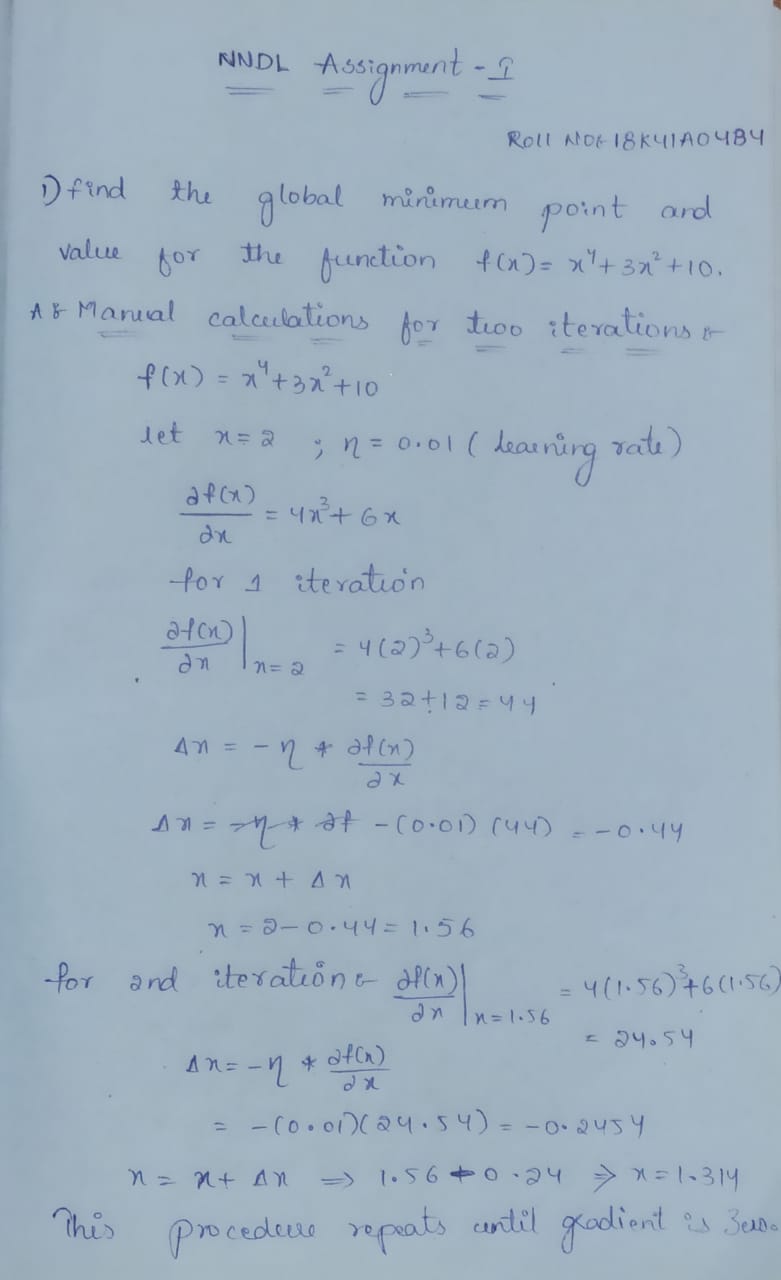 NNDL Assignment - I
Roll No: 18K41A04B4
1) find the global minimum point and
value for the function f(x) = x⁴+3x²+10.
A: Manual calculations for two iterations :-
f(x) = x⁴+3x²+10
let x=2 ; η = 0.01 (learning rate)
∂f(x)/∂x = 4x³+6x
for 1 iteration
∂f(x)/∂x |x=2 = 4(2)³+6(2)
= 32+12=44
Δx = -η * ∂f(x)/∂x
Δx = -η * ∂f -(0.01) (44) = -0.44
x = x + Δx
x = 2-0.44 = 1.56
for 2nd iteration :- ∂f(x)/∂x |x=1.56 = 4(1.56)³+6(1.56)
= 24.54
Δx = -η * ∂f(x)/∂x
= -(0.01)(24.54) = -0.2454
x = x+ Δx ⇒ 1.56 - 0.24 ⇒ x=1.314
This procedure repeats until gradient is zero.